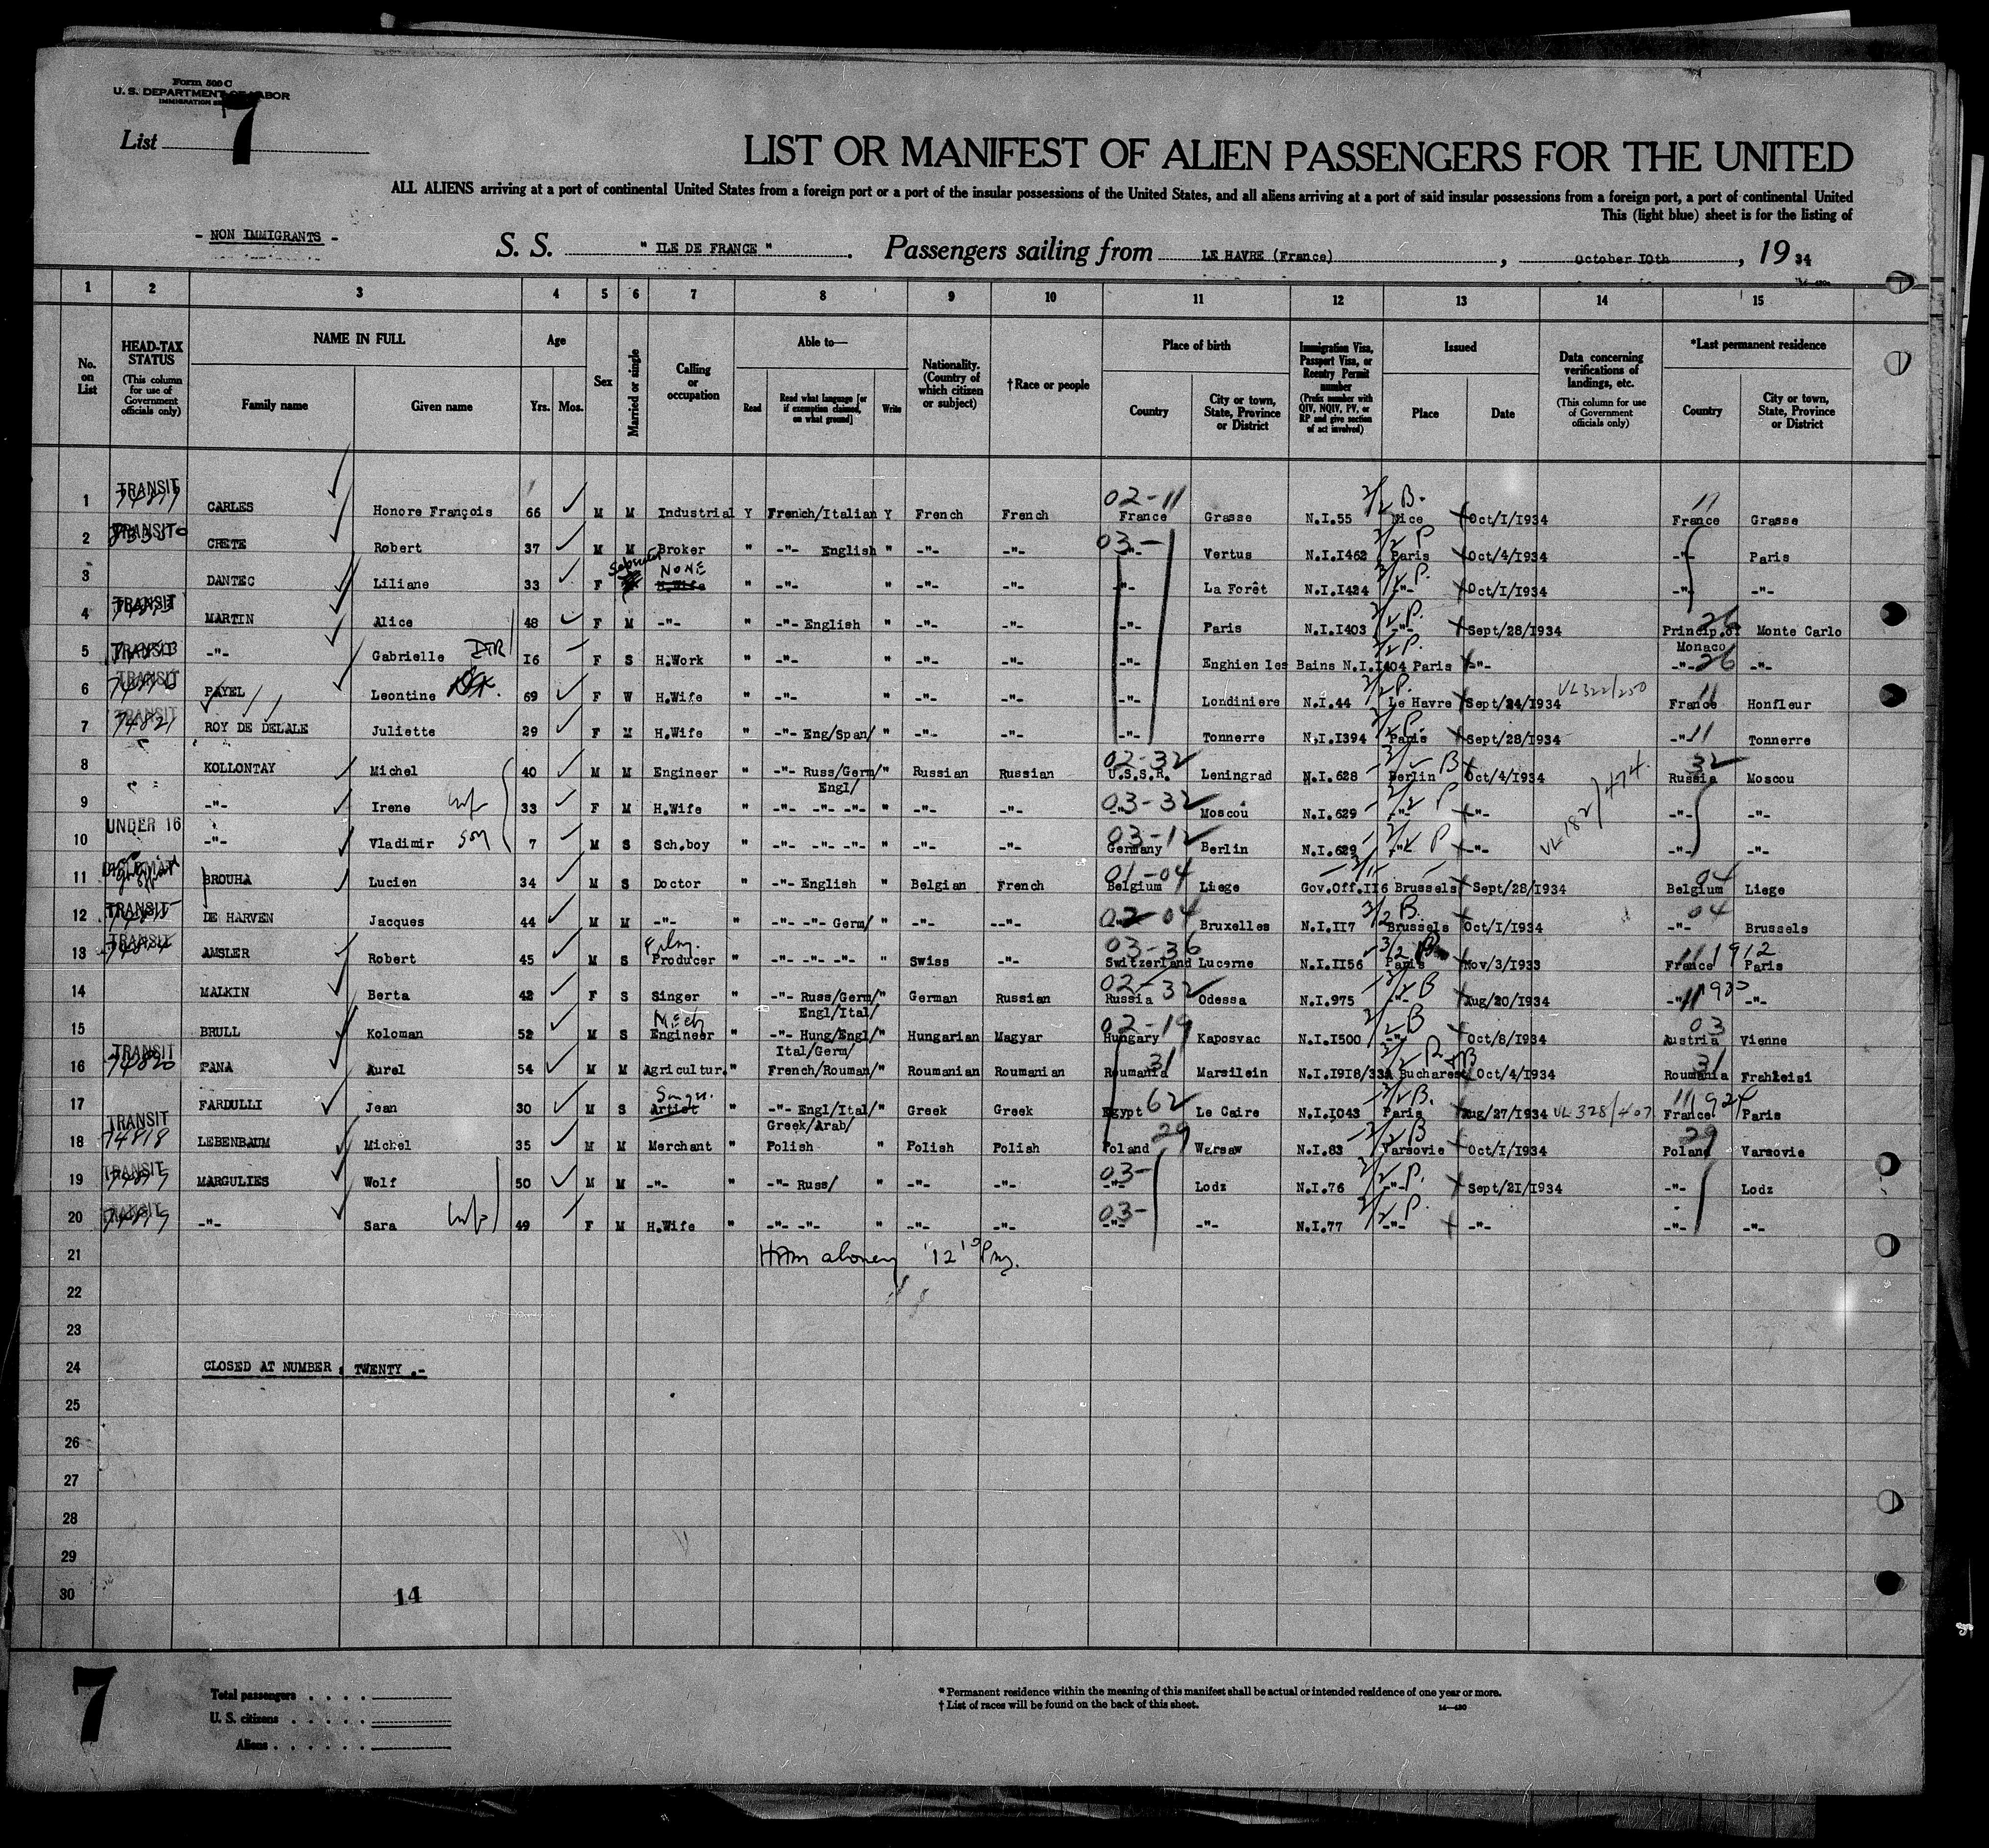 Form 500 C
U. S. DEPARTMENT OF LABOR
List 7
LIST OR MANIFEST OF ALIEN PASSENGERS FOR THE UNITED
ALL ALIENS arriving at a port of continental United States from a foreign port or a port of the insular possessions of the United States, and all aliens arriving at a port of said insular possessions from a foreign port, a port of continental United
This (light blue) sheet is for the listing of
- NON IMMIGRANTS -
S. S. " ILE DE FRANCE ". Passengers sailing from LE HAVRE (France), October 10th, 19 34
1 2 3 4 5 6 7 8 9 10 11 12 13 14 15
No. on List
HEAD-TAX STATUS (This column for use of Government officials only)
NAME IN FULL Family name Given name
Age Yrs. Mos.
Sex
Married or single
Calling or occupation
Able to— Read Read what language [or if exemption claimed, on what ground] Write
Nationality. (Country of which citizen or subject)
†Race or people
Place of birth Country City or town, State, Province or District
Immigration Visa, Passport Visa, or Reentry Permit number (Prefix number with QIV, NQIV, PV, or RP and give section of act involved)
Issued Place Date
Data concerning verifications of landings, etc. (This column for use of Government officials only)
*Last permanent residence Country City or town, State, Province or District
1 TRANSIT CARLES Honore François 66 M M Industrial Y French/Italian Y French French 02-11 France Grasse N.I.55 Nice Oct/1/1934 11 France Grasse
2 TRANSIT CRETE Robert 37 M M Broker " -"- English " -"- -"- 03- -"- Vertus N.I.I462 Paris Oct/4/1934 -"- Paris
3 DANTEC Liliane 33 F NONE H.Wife " -"- " -"- -"- -"- La Forêt N.I.I424 -"- Oct/1/1934 -"- -"-
4 TRANSIT MARTIN Alice 48 F M -"- " -"- English " -"- -"- -"- Paris N.I.I403 -"- Sept/28/1934 26 Princip.of Monaco Monte Carlo
5 TRANSIT -"- Gabrielle I6 F S H.Work " -"- " -"- -"- -"- Enghien les Bains N.I.I404 Paris -"- -"- 26 -"-
6 TRANSIT PAYEL Leontine 69 F W H.Wife " -"- " -"- -"- -"- Londiniere N.I.44 Le Havre Sept/24/1934 VL322/250 11 France Honfleur
7 TRANSIT 74821 ROY DE DELALE Juliette 29 F M H.Wife " -"- Eng/Span/ " -"- -"- -"- Tonnerre N.I.I394 Paris Sept/28/1934 -"- 11 Tonnerre
8 KOLLONTAY Michel 40 M M Engineer " -"- Russ/Germ/ Engl/ " Russian Russian 02-32 U.S.S.R. Leningrad N.I.628 Berlin Oct/4/1934 32 Russia Moscou
9 -"- Irene wf 33 F M H.Wife " -"- -"- -"- " -"- -"- 03-32 Moscou N.I.629 -"- -"- VL182/474 -"- -"-
10 UNDER 16 -"- Vladimir son 7 M S Sch.boy " -"- -"- -"- " -"- -"- 03-12 Germany Berlin N.I.629 -"- -"- -"- -"-
11 DIPLOMAT BROUHA Lucien 34 M S Doctor " -"- English " Belgian French 01-04 Belgium Liege Gov.Off.II6 Brussels Sept/28/1934 04 Belgium Liege
12 TRANSIT DE HARVEN Jacques 44 M M -"- " -"- -"- Germ/ " -"- --"- 02-04 Bruxelles N.I.II7 Brussels Oct/1/1934 04 -"- Brussels
13 TRANSIT AMSLER Robert 45 M S Film. Producer " -"- -"- -"- " Swiss -"- 03-36 Switzerland Lucerne N.I.II56 Paris Nov/3/1933 11 1912 France Paris
14 MALKIN Berta 42 F S Singer " -"- Russ/Germ/ Engl/Ital/ " German Russian 02-32 Russia Odessa N.I.975 -"- Aug/20/1934 -"- 11 -"-
15 BRULL Koloman 52 M S Mech Engineer " -"- Hung/Engl/ Ital/Germ/ " Hungarian Magyar 02-19 Hungary Kaposvac N.I.I500 -"- Oct/8/1934 03 Austria Vienne
16 TRANSIT 74820 PANA Aurel 54 M M Agricultur. " French/Rouman/ " Roumanian Roumanian 31 Roumania Marsilein N.I.I918/33A Bucharest Oct/4/1934 31 Roumania Frahleisi
17 FARDULLI Jean 30 M S Singer. Artist " -"- Engl/Ital/ Greek/Arab/ " Greek Greek 62 Egypt Le Caire N.I.I043 Paris Aug/27/1934 VL328/407 11 1924 France Paris
18 TRANSIT 74818 LEBENBAUM Michel 35 M M Merchant " Polish " Polish Polish 29 Poland Warsaw N.I.83 Varsovie Oct/1/1934 29 Poland Varsovie
19 TRANSIT MARGULIES Wolf 50 M M -"- " -"- Russ/ " -"- -"- 03- -"- Lodz N.I.76 -"- Sept/21/1934 -"- Lodz
20 TRANSIT -"- Sara wf 49 F M H.Wife " -"- -"- " -"- -"- 03- -"- -"- N.I.77 -"- -"- -"- -"-
21
22
23
24 CLOSED AT NUMBER : TWENTY .-
25
26
27
28
29
30 14
7
Total passengers
U. S. citizens
Aliens
* Permanent residence within the meaning of this manifest shall be actual or intended residence of one year or more.
† List of races will be found on the back of this sheet.
14—430